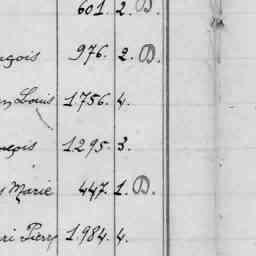 601. 2. D.
976. 2. D.
Louis 1.756. 4.
1.295. 3.
Marie 447. 1. D.
Pierre 1.984. 4.